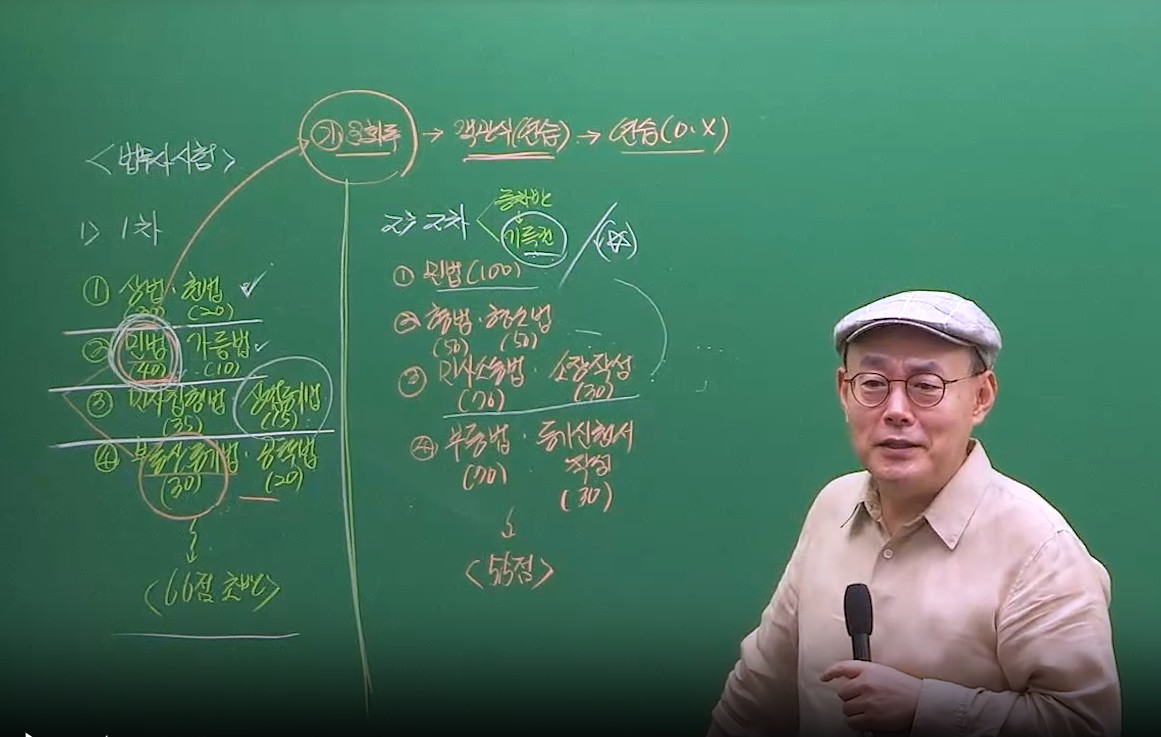 <법무사시험>
1> 1차
① 상법·헌법 ✓
(30) (20)
② 민법 가등법 ✓
(40) · (10)
③ 민사집행법 상업등기법
(35) (15)
④ 부동산등기법·공탁법
(30) (20)
<66점 초반>
→ 객관식(연습) → 연습(O.X)
2> 2차 < 동차반
기득권
① 민법(100)
② 형법·형소법
(50) (50)
③ 민사소송법 · 소장작성
(70) (30)
④ 부등법 · 등기신청서
작성
(70) (30)
<55점>